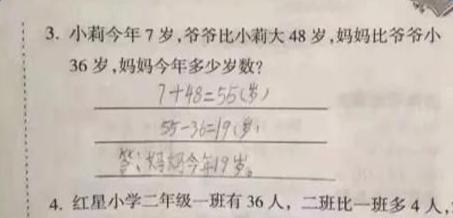 3. 小莉今年7岁,爷爷比小莉大48岁,妈妈比爷爷小
36岁,妈妈今年多少岁数?
7+48=55(岁)
55-36=19(岁)
答:妈妈今年19岁。
4. 红星小学二年级一班有36人，二班比一班多4人,